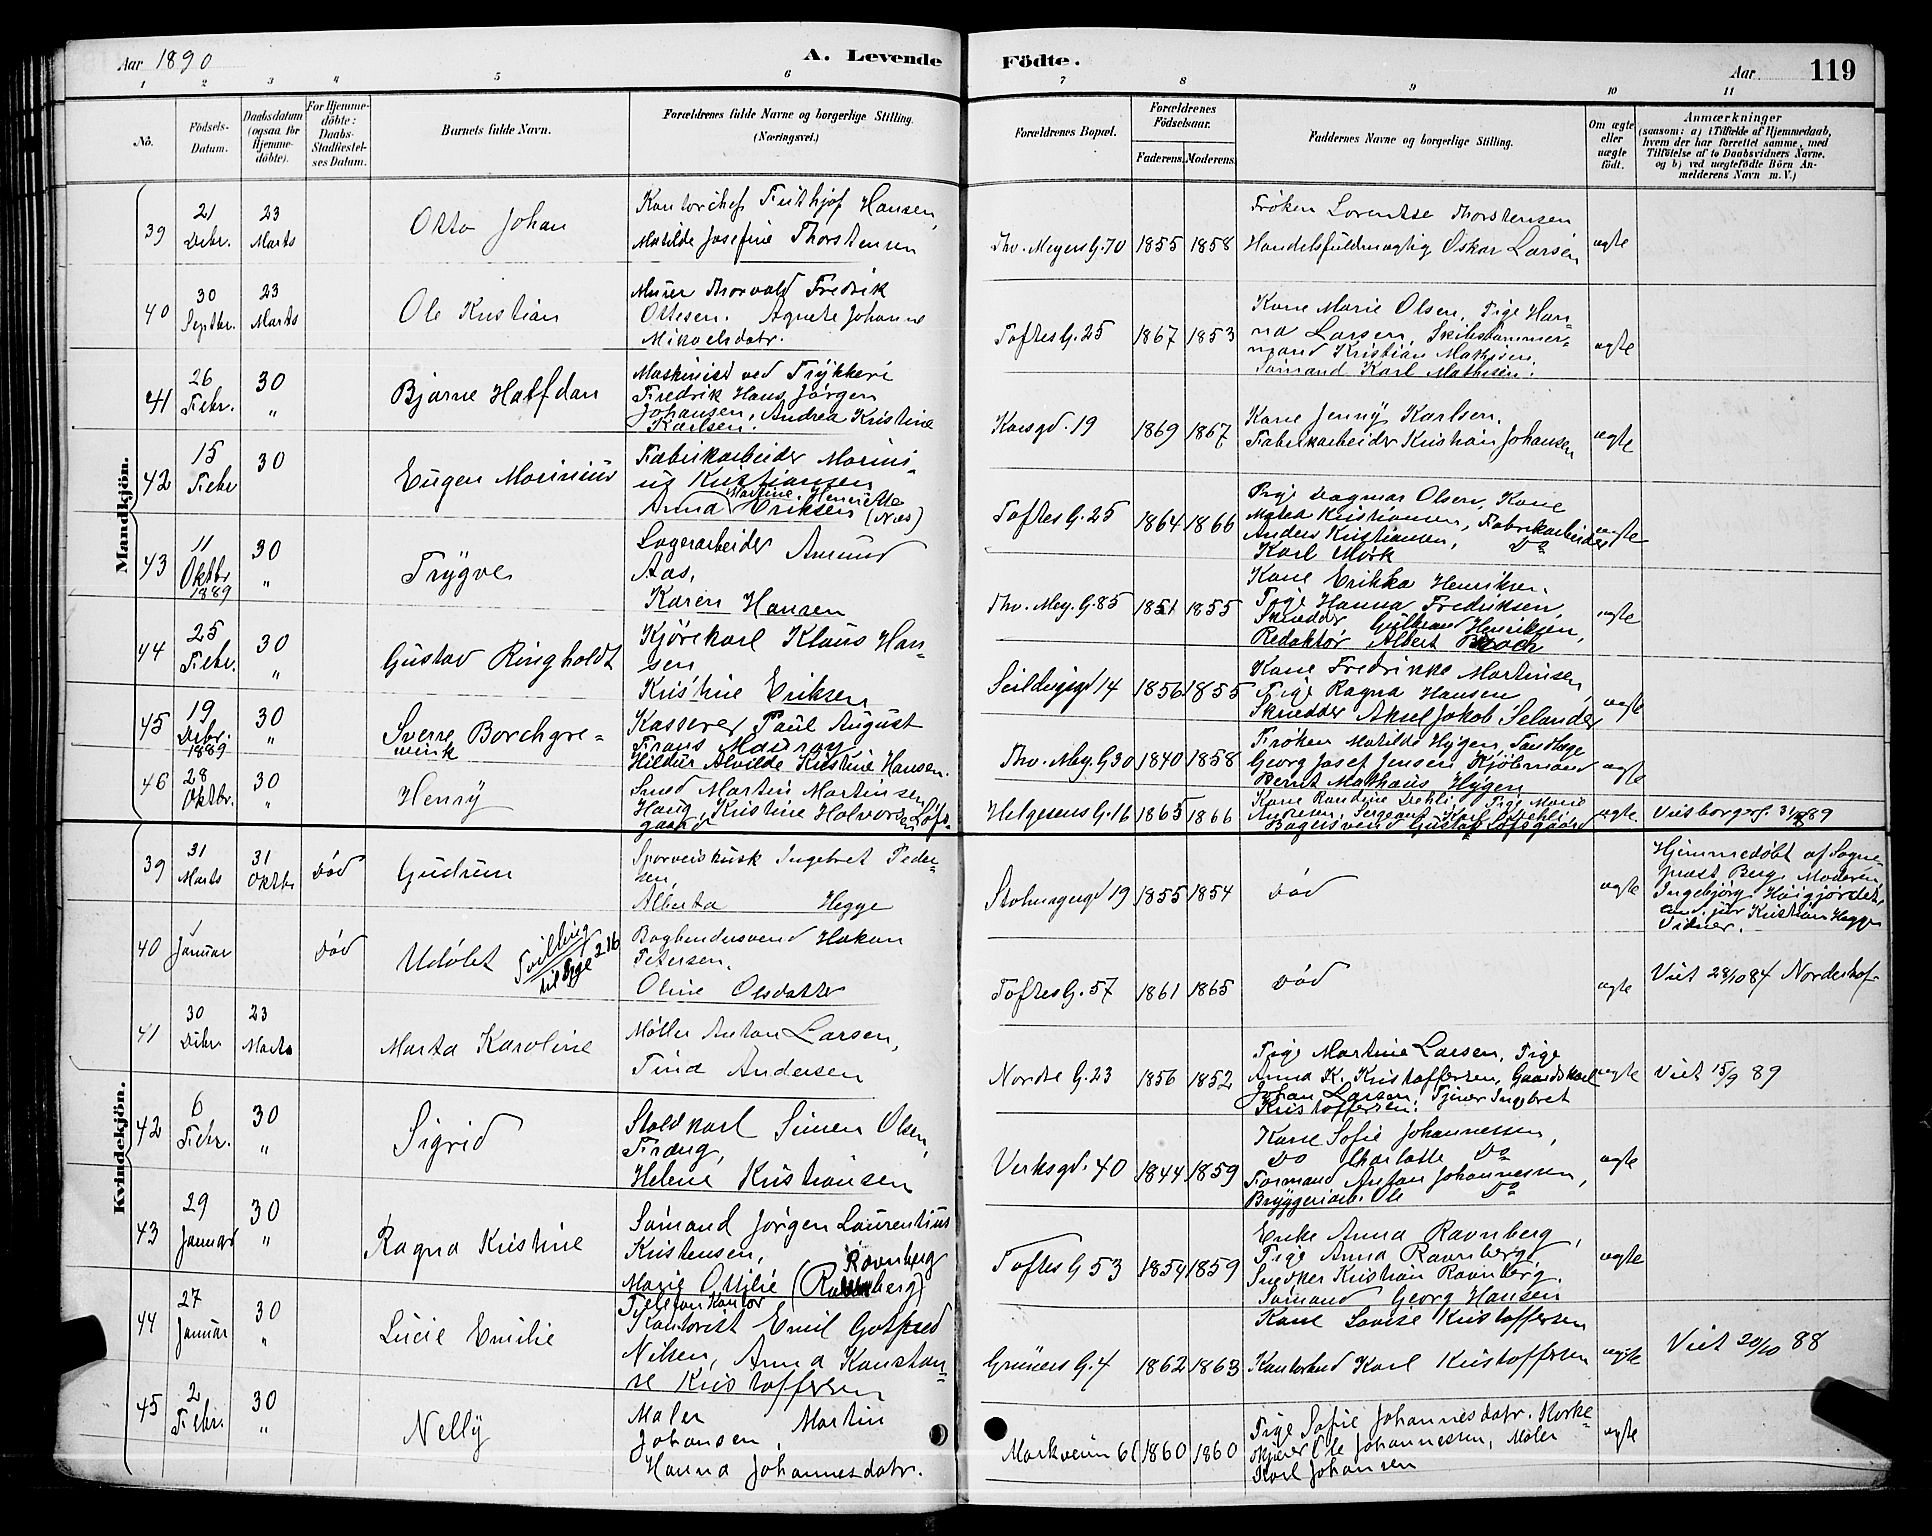 Aar 1890
A. Levende
Födte.
Aar
119
1
2
3
4
5
6
7
8
9
10
11
No.
Födsels-
Datum.
Daabsdatum
(ogsaa for
Hjemme-
döbte).
For Hjemme-
döbte:
Daabs-
Stadfæstel-
ses Datum.
Barnets fulde Navn.
Forældrenes fulde Navne og borgerlige Stilling.
(Næringsvei.)
Forældrenes Bopæl.
Forældrenes
Födselsaar.
Faderens.
Moderens.
Faddernes Navne og borgerlige Stilling.
Om ægte
eller
uægte
födt.
Anmærkninger
(saasom: a) i Tilfælde af Hjemmedaab,
hvem der har forrettet samme, med
Tilföielse af to Daabsvidners Navne,
og b) ved uægtefödte Börn An-
melderens Navn m. V.)
Mandkjön.
39
21
Debr.
23
Marts
Otto Johan
Kontorchef Frithjof Hansen,
Matilde Josefine Thorstensen
Thv. Meyers G. 70
1855
1858
Frøken Lorentse Thorstensen
Handelsfuldmægtig Oskar Larsen
ægte
40
30
Septbr.
23
Marts
Ole Kristian
Murer Thorvald Fredrik
Ottesen. Agnete Johanne
Mikaelsdatr.
Toftes G. 25
1867
1853
Kone Marie Olsen, Pige Han-
na Larsen, Skibstømmer-
mand Kristian
Sømand Karl Mathisen.
ægte
41
26
Febr.
30
"
Bjarne Halfdan
Maskinist ved Trykkeri
Fredrik Hans Jørgen
Johansen, Andrea Kristine
Karlsen.
Korsgd. 19
1869
1867
Kone Jenny Karlsen.
Fabrikarbeider Kristian Johansen
ægte
42
15
Febr
30
Eugen Marinius
Fabrikarbeider Marini-
us Kristiansen
Martine Henriette
Anna Eriksen (Næs)
Toftes G. 25
1864
1866
Pige Dagmar Olsen, Kone
Matea Kristiansen, Fabrikarbeider
Anders Kristiansen, Do
Karl Mørk
ægte
43
11
Oktbr
1889
30
"
Trygve
Lagerarbeider Amund
Aas,
Karen Hansen
Thv. Mey. G. 85
1851
1855
Kone Erikka Henriksen.
Pige Hanna Fredriksen,
Skrædder Henriksen,
Redaktør Albert
ægte
44
25
Febr.
30
"
Gustav Ringholdt
Kjørekarl Klaus Han-
sen
Kristine Eriksen
14
1856
1855
Kone Fredrikke Martinsen,
Pige Ragna Hansen
Skrædder Aksel Jakob Selander
ægte
45
19
Debr.
1889
30
"
Sverre Borchgre-
vink
Kasserer Paul August
Frans
Hildur Alvilde Kristine Hansen.
Thv. Mey. G 30
1840
1858
Frøken Matilde Hygen,
Georg Josef Jensen Kjøbmand
Bernt Mathæus Hygen
ægte
46
28
Oktbr.
30
"
Henry
Smed Martin Martinsen
Haug, Kristine Halvorsen Løfs-
gaard
Helgesens G. 16
1865
1866
Kone Randine Dehli, Pige Marie
Andresen, Sergeant Karl Dehli
Bagersvend Gustav Løfsgaard
ægte
Kvindekjön.
39
31
Marts
31
Oktbr
død
Gudrun
Sporveiskusk Ingebret Peder-
sen,
Alberta Hegge
19
1855
1854
død
ægte
Hjemmedøbt af Sogne-
præst Berg, Moderen
Ingebjørg
cand. jur Kristian Hegge
Vidner.
40
1
Januar
død
Udøbt
Tvilling
til Pige 216
Bogbindersvend Hakon
Petersen.
Oline Olsdatter
Toftes G. 57
1861
1865
død
ægte
Viet 28/10 84 Norderhof
41
30
Debr.
23
Marts
Marta Karoline
Møller Anton Larsen,
Tina Andersen
Nordre G. 23
1856
1852
Pige Martine Larsen, Pige
Anna K. Kristoffersen, Gaardskarl
Johan Larsen, Tjener Ingebret
Kristoffersen.
ægte
Viet 15/9 89
42
6
Febr.
30
"
Sigrid
Staldkarl Simen Olsen
Fræng,
Helene Kristiansen
Verksgd. 40
1844
1859
Kone Sofie Johannessen,
Do Charlotte Do
Formand Anton Johannessen,
Bryggeriarb. Ole Do
ægte
43
29
Januar
30
"
Ragna Kristine
Sømand Jørgen Laurentius
Kristensen,
Ravnberg
Marie Ottilie
Toftes G 53
1854
1859
Enke Anna Ravnberg,
Pige Anna Ravnberg,
Snedker Kristian Ravnberg.
Sømand Georg Hansen
ægte
44
27
Januar
30
"
Lucie Emilie
Telefon Kontor
Kontorist Emil Gotfred
Nilsen, Anna Konstan-
se Kristoffersen
Grüners G. 4
1862
1863
Kone Lovise Kristoffersen
Kontorbud Karl Kristoffersen
ægte
Viet 20/10 88
45
2
Febr.
30
"
Nelly
Maler Martin
Johansen,
Hanna Johannesdatr.
Markveien 61
1860
1860
Pige Sofie Johannesdatr. Korke-
skjærer Ole Johannessen, Maler
Karl Johansen
ægte